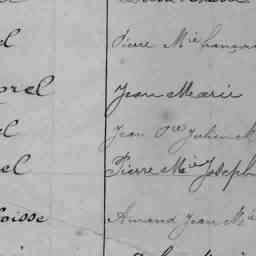 el Pierre Mie françois
orel Jean Marie
el Jean Pre Julien M
el Pierre Mie Joseph
loisse Amand Jean Mie